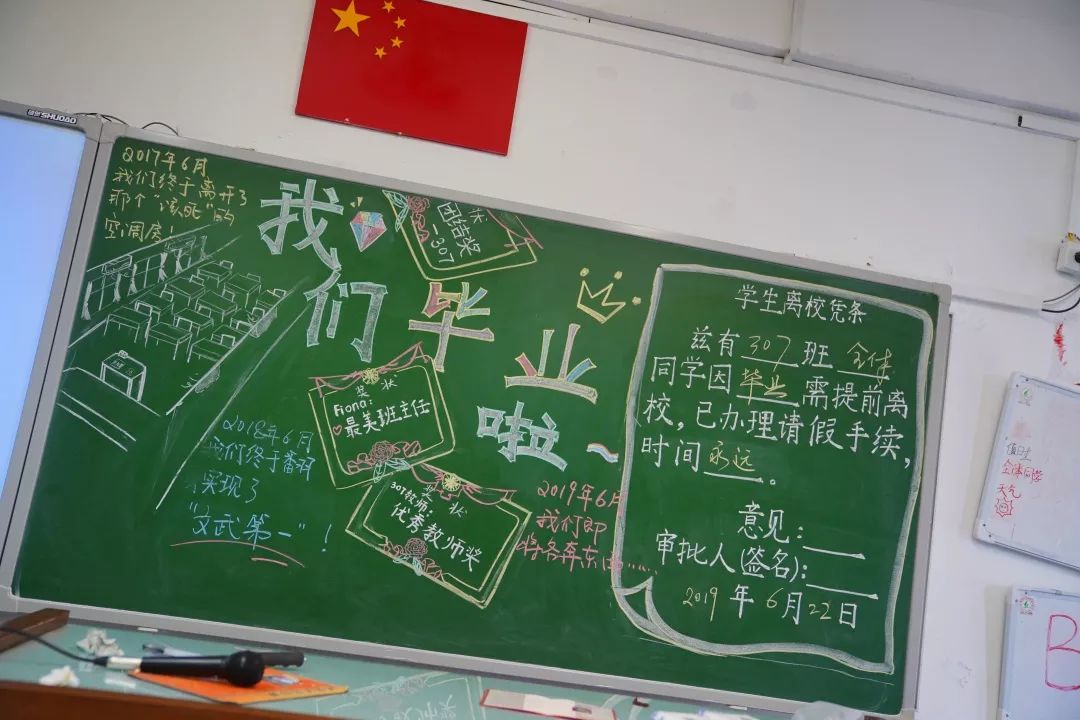 SHUOAO
2017年6月
我们终于离开了
那个"该死"的
空调房!
我们毕业啦~
状
团结奖
-307
奖状
Fiona:
最美班主任
奖状
307教师:
优秀教师奖
2018年6月
我们终于
实现了
"文武第一"!
2019年6月
我们即
将各奔东西……
学生离校凭条
兹有307班全体
同学因毕业需提前离
校,已办理请假手续,
时间永远。
意见:
审批人(签名):
2019年6月22日
值日生
全体同学
天气
B